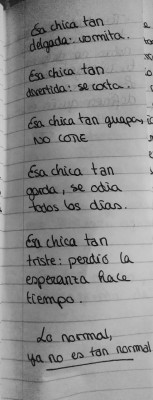 Esa chica tan
delgada: vomita.
Esa chica tan
divertida: se corta.
Esa chica tan guapa,
NO COME
Esa chica tan
gorda, se odia
todos los días.
Esa chica tan
triste: perdió la
esperanza hace
tiempo.
Lo normal,
ya no es tan normal